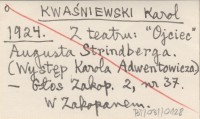 KWAŚNIEWSKI Karol
1924. Z teatru: "Ojciec"
Augusta Strindberga.
(Występ Karola Adwentowicza)
— Głos Zakop. 2, nr. 37.
W Zakopanem.